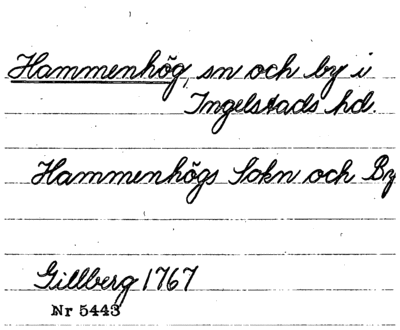 Hammenhög, sn och by i
Ingelstads hd.
Hammenhögs Sokn och By
Gillberg 1767
Nr 5443